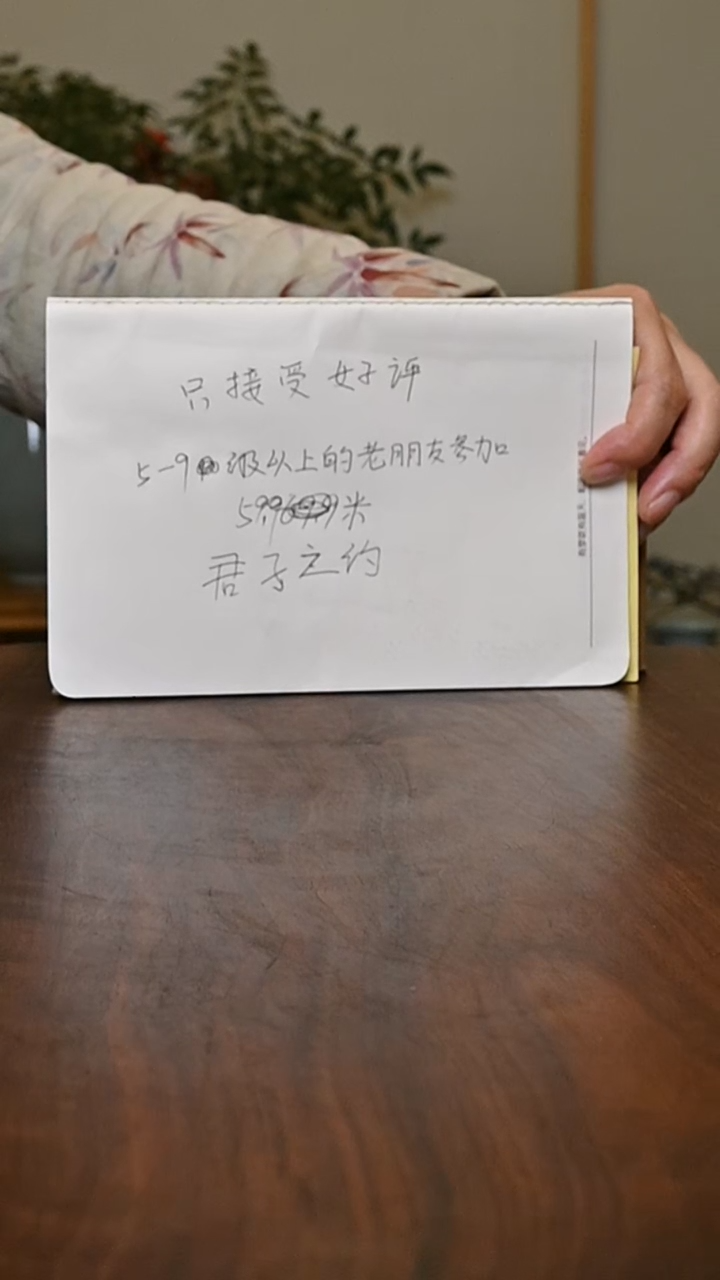 只接受好评
5-9级以上的老朋友参加
米
君子之约